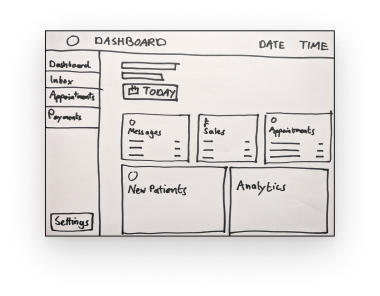 DASHBOARD DATE TIME
Dashboard
Inbox
Appointments
Payments
TODAY
Messages Sales Appointments
New Patients Analytics
Settings